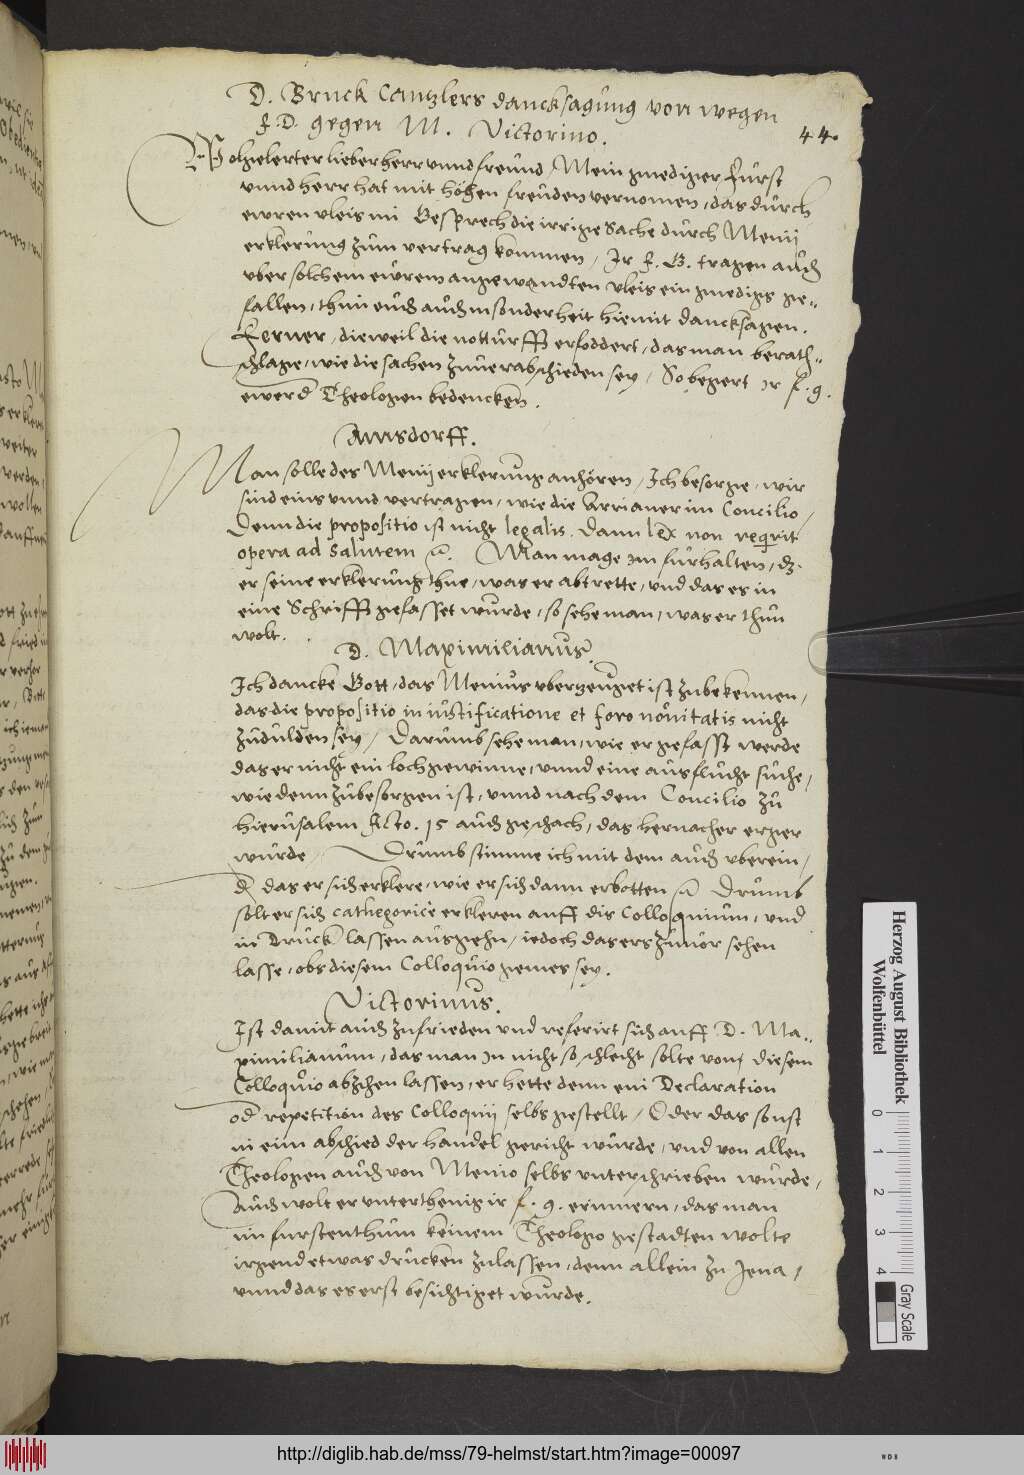 D. Bruck Cantzlers dancksagung von wegen
f. D. gegen M. Victorino.
44.
Wolgelerter lieber herr unnd freund, Mein gnediger Fürst
unnd herr hat mit hogen freuden vernomen, das durch
ewren vleis im Gesprech die irrige Sache durch Menij
erklerung zum vertrag kommen, Ir f. G. tragen auch
uber solchem ewrem angewandten vleis ein gnedigs ge-
fallen, thun euch auch in sonderheit hiemit dancksagen.
Ferner, dieweil die notturfft erfoddert, das man berath-
schlage, wie die sachen zuverabschieden sey, So begert ir f. g.
ewer der Theologen bedencken.
Amsdorff.
Man solle des Menij erklerung anhören, Ich besorge, wir
sind eins unnd vertragen, wie die Arrianer im Concilio,
Denn die propositio ist nicht legalis. Dann lex non requirit
opera ad Salutem &c. Man mage im furhalten, dz
er seine erklerung thue, was er abtrette, und das es in
eine Schrifft gefasset wurde, so sehe man, was er thun
wolt.
D. Maximilianus.
Ich dancke Gott, das Menius uberzeuget ist zubekennen,
das die propositio in iustificatione et foro nouitatis nicht
zudulden sey, Darumb sehe man, wie er gefasst werde
das er nicht ein loch gewinne, unnd eine ausflucht suche,
wie denn zubesorgen ist, unnd nach dem Concilio zu
Hierusalem Acto. 15 auch geschach, das hernacher erger
wurde, Drumb stimme ich mit dem auch uberein,
das er sich erklere, wie er sich dann erbotten &c. Drumb
solt er sich cathegorice erkleren auff dis Colloquium, und
in Druck lassen ausgehn, iedoch das ers zuuor sehen
lasse, obs diesem Colloquio gemes sey.
Victorinus.
Ist damit auch zufrieden und referirt sich auff D. Ma-
ximilianum, das man in nicht so schlecht solte von diesem
Colloquio abzihen lassen, er hette denn ein Declaration
od repetition des Colloquij selbs gestellt, Oder das sonst
in eim abschied der handel gericht wurde, und von allen
Theologen auch von Menio selbs unterschrieben wurde,
Auch wolt er unterthenig ir f. g. erinnern, das man
im furstenthum keinem Theologo gestadten wolte
irgend etwas drucken zulassen, denn allein zu Jena,
unnd das es erst besichtiget wurde.
Herzog August Bibliothek
Wolfenbüttel
0 1 2 3 4
Gray Scale
http://diglib.hab.de/mss/79-helmst/start.htm?image=00097
WDB